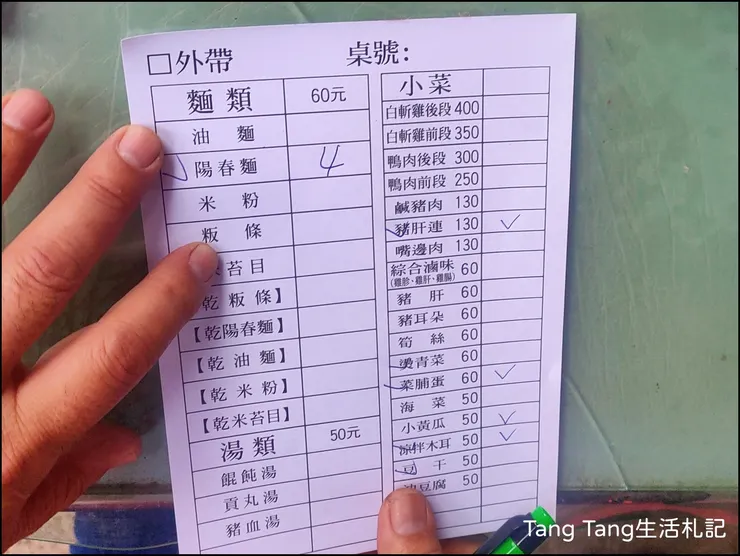 □外帶 桌號:
麵類 60元
油麵
陽春麵 4
米粉
粄條
苔目
乾粄條】
【乾陽春麵】
【乾油麵】
【乾米粉】
【乾米苔目】
湯類 50元
餛飩湯
貢丸湯
豬血湯
小菜
白斬雞後段 400
白斬雞前段 350
鴨肉後段 300
鴨肉前段 250
鹹豬肉 130
豬肝連 130 ✓
嘴邊肉 130
綜合滷味 60
(雞胗、雞肝、雞腸)
豬肝 60
豬耳朵 60
筍絲 60
燙青菜 60
菜脯蛋 60 ✓
海菜 50
小黃瓜 50 ✓
涼拌木耳 50 ✓
豆干 50
豆腐 50
Tang Tang生活札記